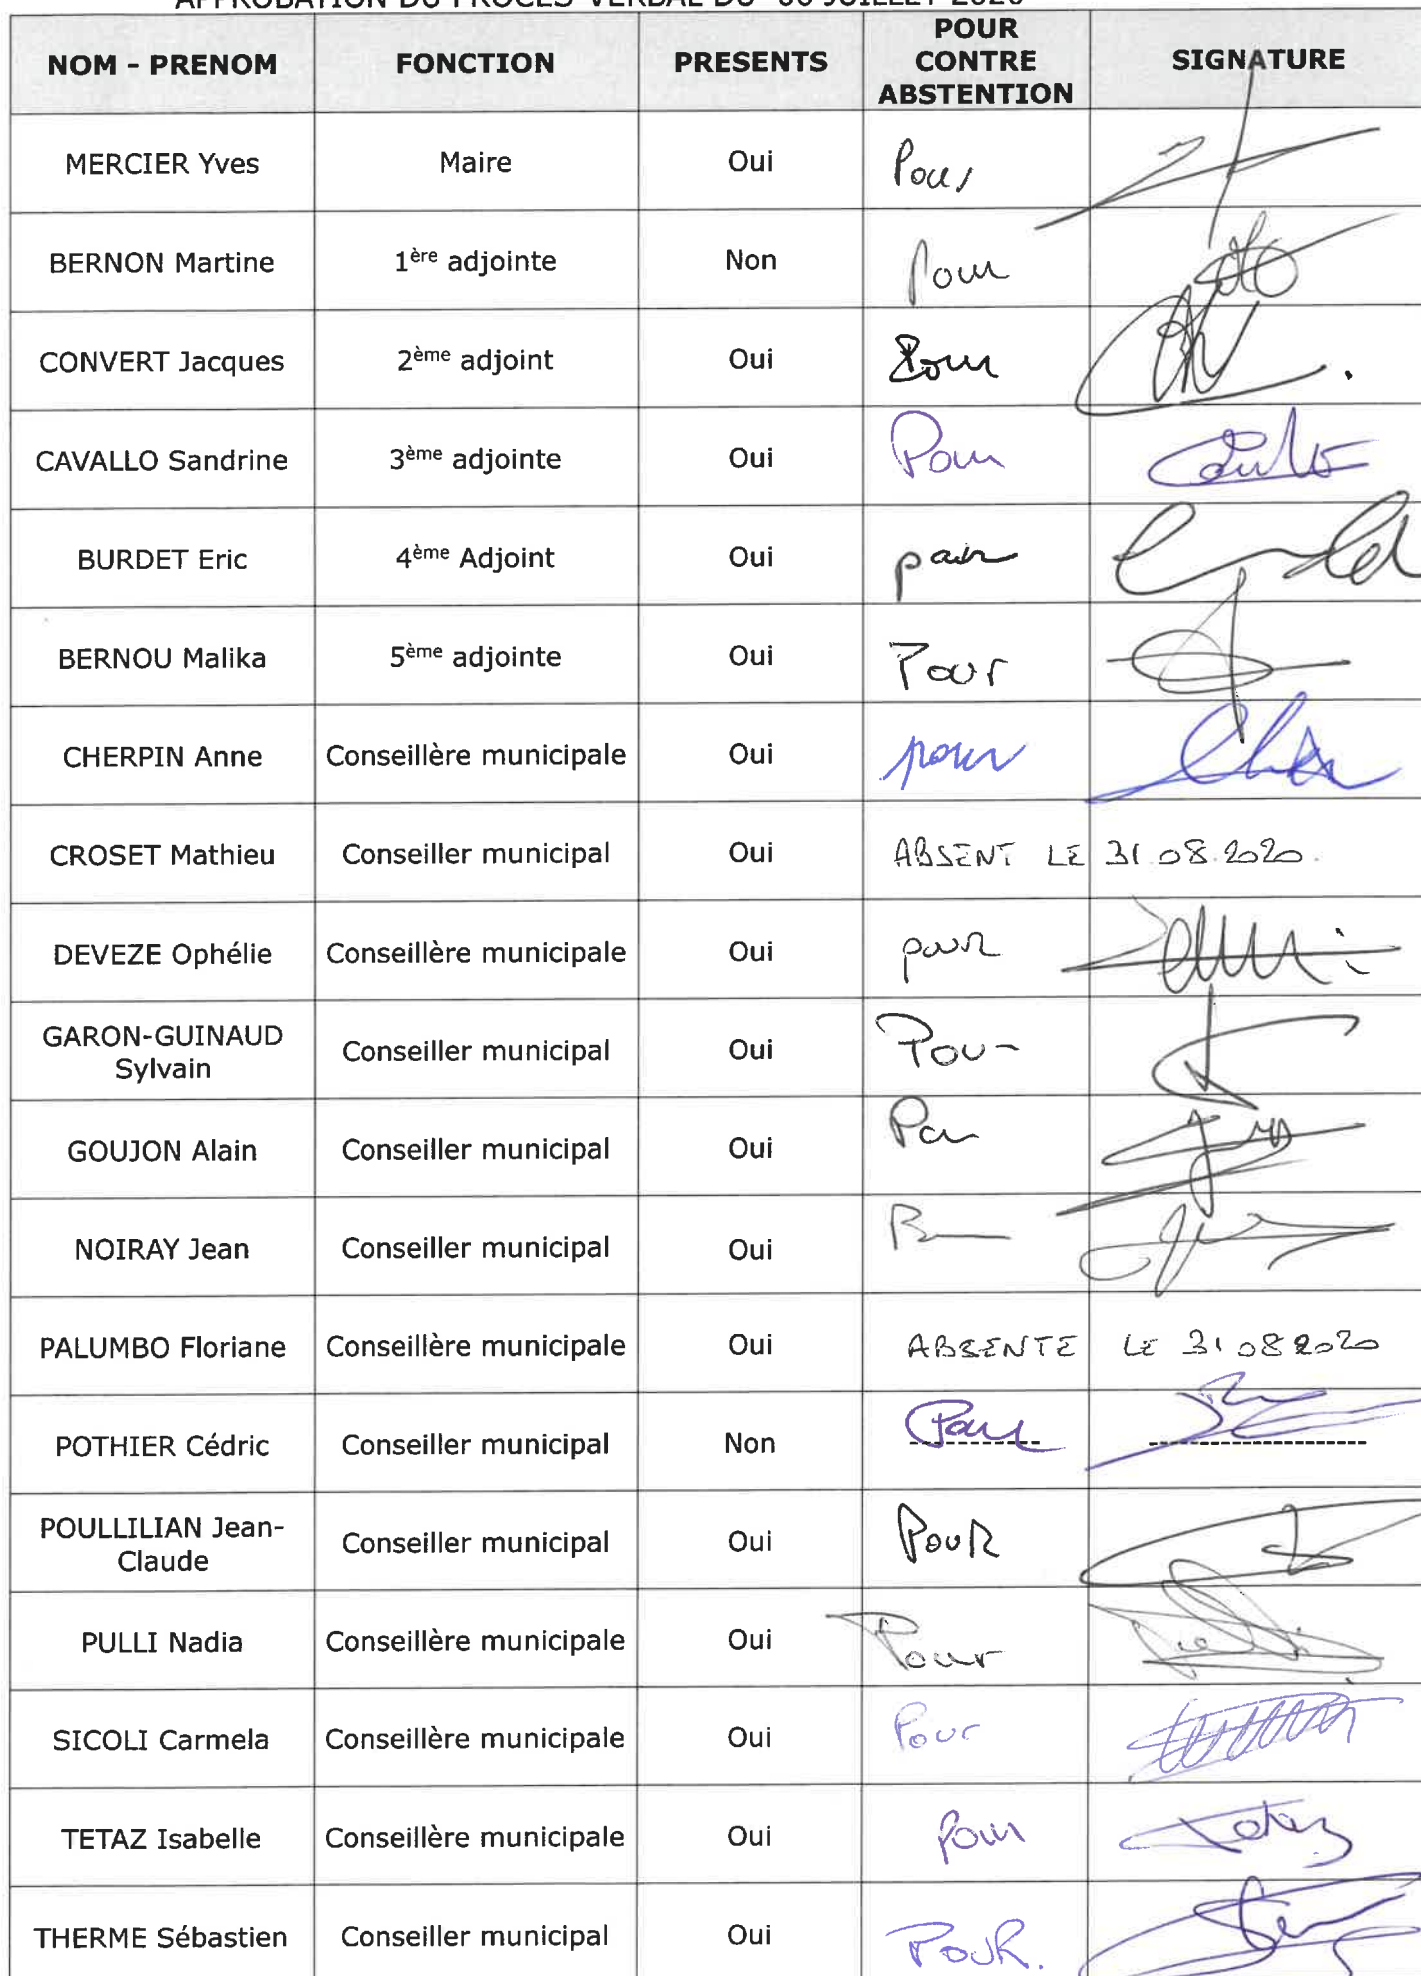 APPROBATION DU PROCES-VERBAL DU 06 JUILLET 2020
NOM - PRENOM FONCTION PRESENTS POUR CONTRE ABSTENTION SIGNATURE
MERCIER Yves Maire Oui Pour
BERNON Martine 1ère adjointe Non Pour
CONVERT Jacques 2ème adjoint Oui Pour
CAVALLO Sandrine 3ème adjointe Oui Pour
BURDET Eric 4ème Adjoint Oui pour
BERNOU Malika 5ème adjointe Oui Pour
CHERPIN Anne Conseillère municipale Oui pour
CROSET Mathieu Conseiller municipal Oui ABSENT LE 31.08.2020.
DEVEZE Ophélie Conseillère municipale Oui pour
GARON-GUINAUD Sylvain Conseiller municipal Oui Pour
GOUJON Alain Conseiller municipal Oui Pour
NOIRAY Jean Conseiller municipal Oui
PALUMBO Floriane Conseillère municipale Oui ABSENTE LE 31 08 2020
POTHIER Cédric Conseiller municipal Non Pour
POULLILIAN Jean-Claude Conseiller municipal Oui POUR
PULLI Nadia Conseillère municipale Oui Pour
SICOLI Carmela Conseillère municipale Oui Pour
TETAZ Isabelle Conseillère municipale Oui Pour
THERME Sébastien Conseiller municipal Oui POUR.